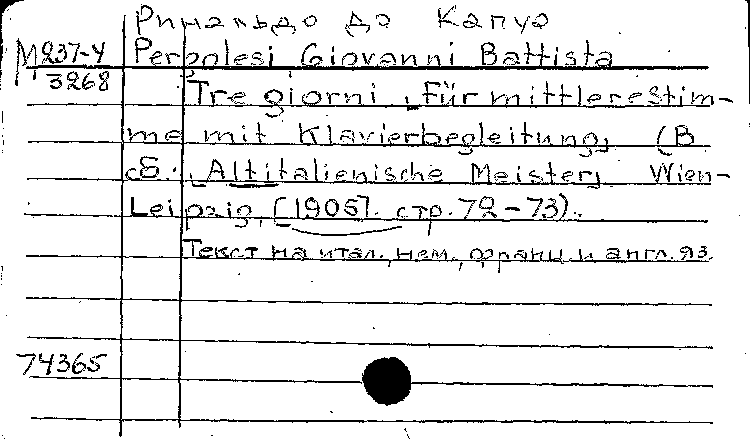 Ринальдо до Капуа
М 237-4 Pergolesi Giovanni Battista
3268
Tre giorni, für mittlere Stim-
me mit Klavierbegleitung, (В
сб. Altitalienische Meister, Wien-
Leipzig, [1905]. стр. 72-73).
Текст на итал., нем., франц. и англ. яз.
74365